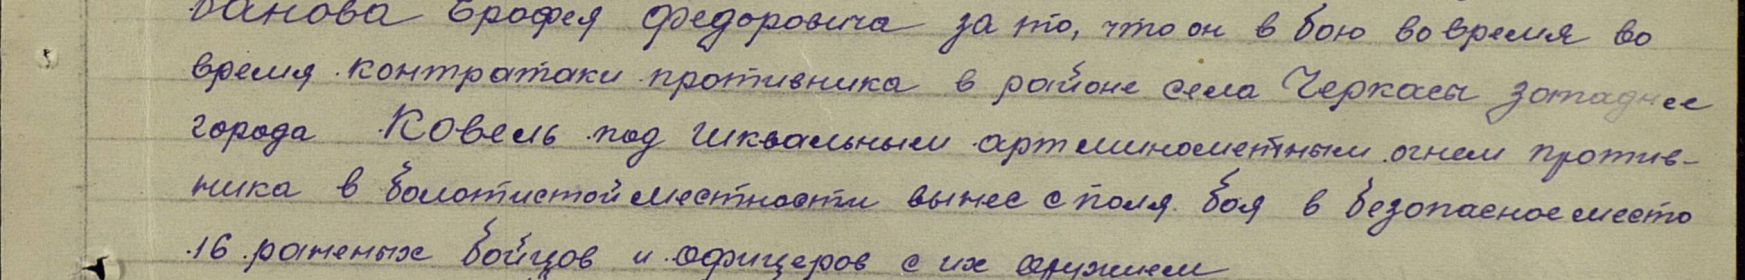 банова Ерофея Федоровича за то, что он в бою во время во
время контратаки противника в районе села Черкасы западнее
города Ковель под шквальным артминометным огнем против-
ника в болотистой местности вынес с поля боя в безопасное место
16 раненых бойцов и офицеров с их оружием